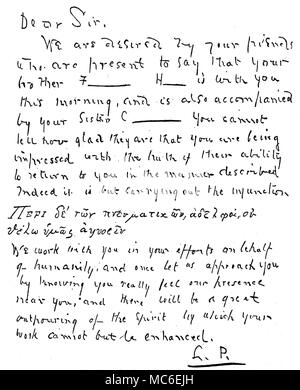 Dear Sir.
We are desired by your friends
who are present to say that your
brother F____ H__ is with you
this morning, and is also accompanied
by your Sister C____ You cannot
tell how glad they are that you are being
impressed with the truth of their ability
to return to you in the manner described
Indeed it is but carrying out the injunction
Περι δὲ τῶν πνευματικῶν, ἀδελφοί, οὐ
θέλω ὑμᾶς ἀγνοεῖν
We work with you in your efforts on behalf
of humanity: and once let us approach you
by knowing you really feel our presence
near you, and there will be a great
outpouring of the Spirit by which your
work cannot but be enhanced.
L. P.
alamy
MC6EJH
www.alamy.com